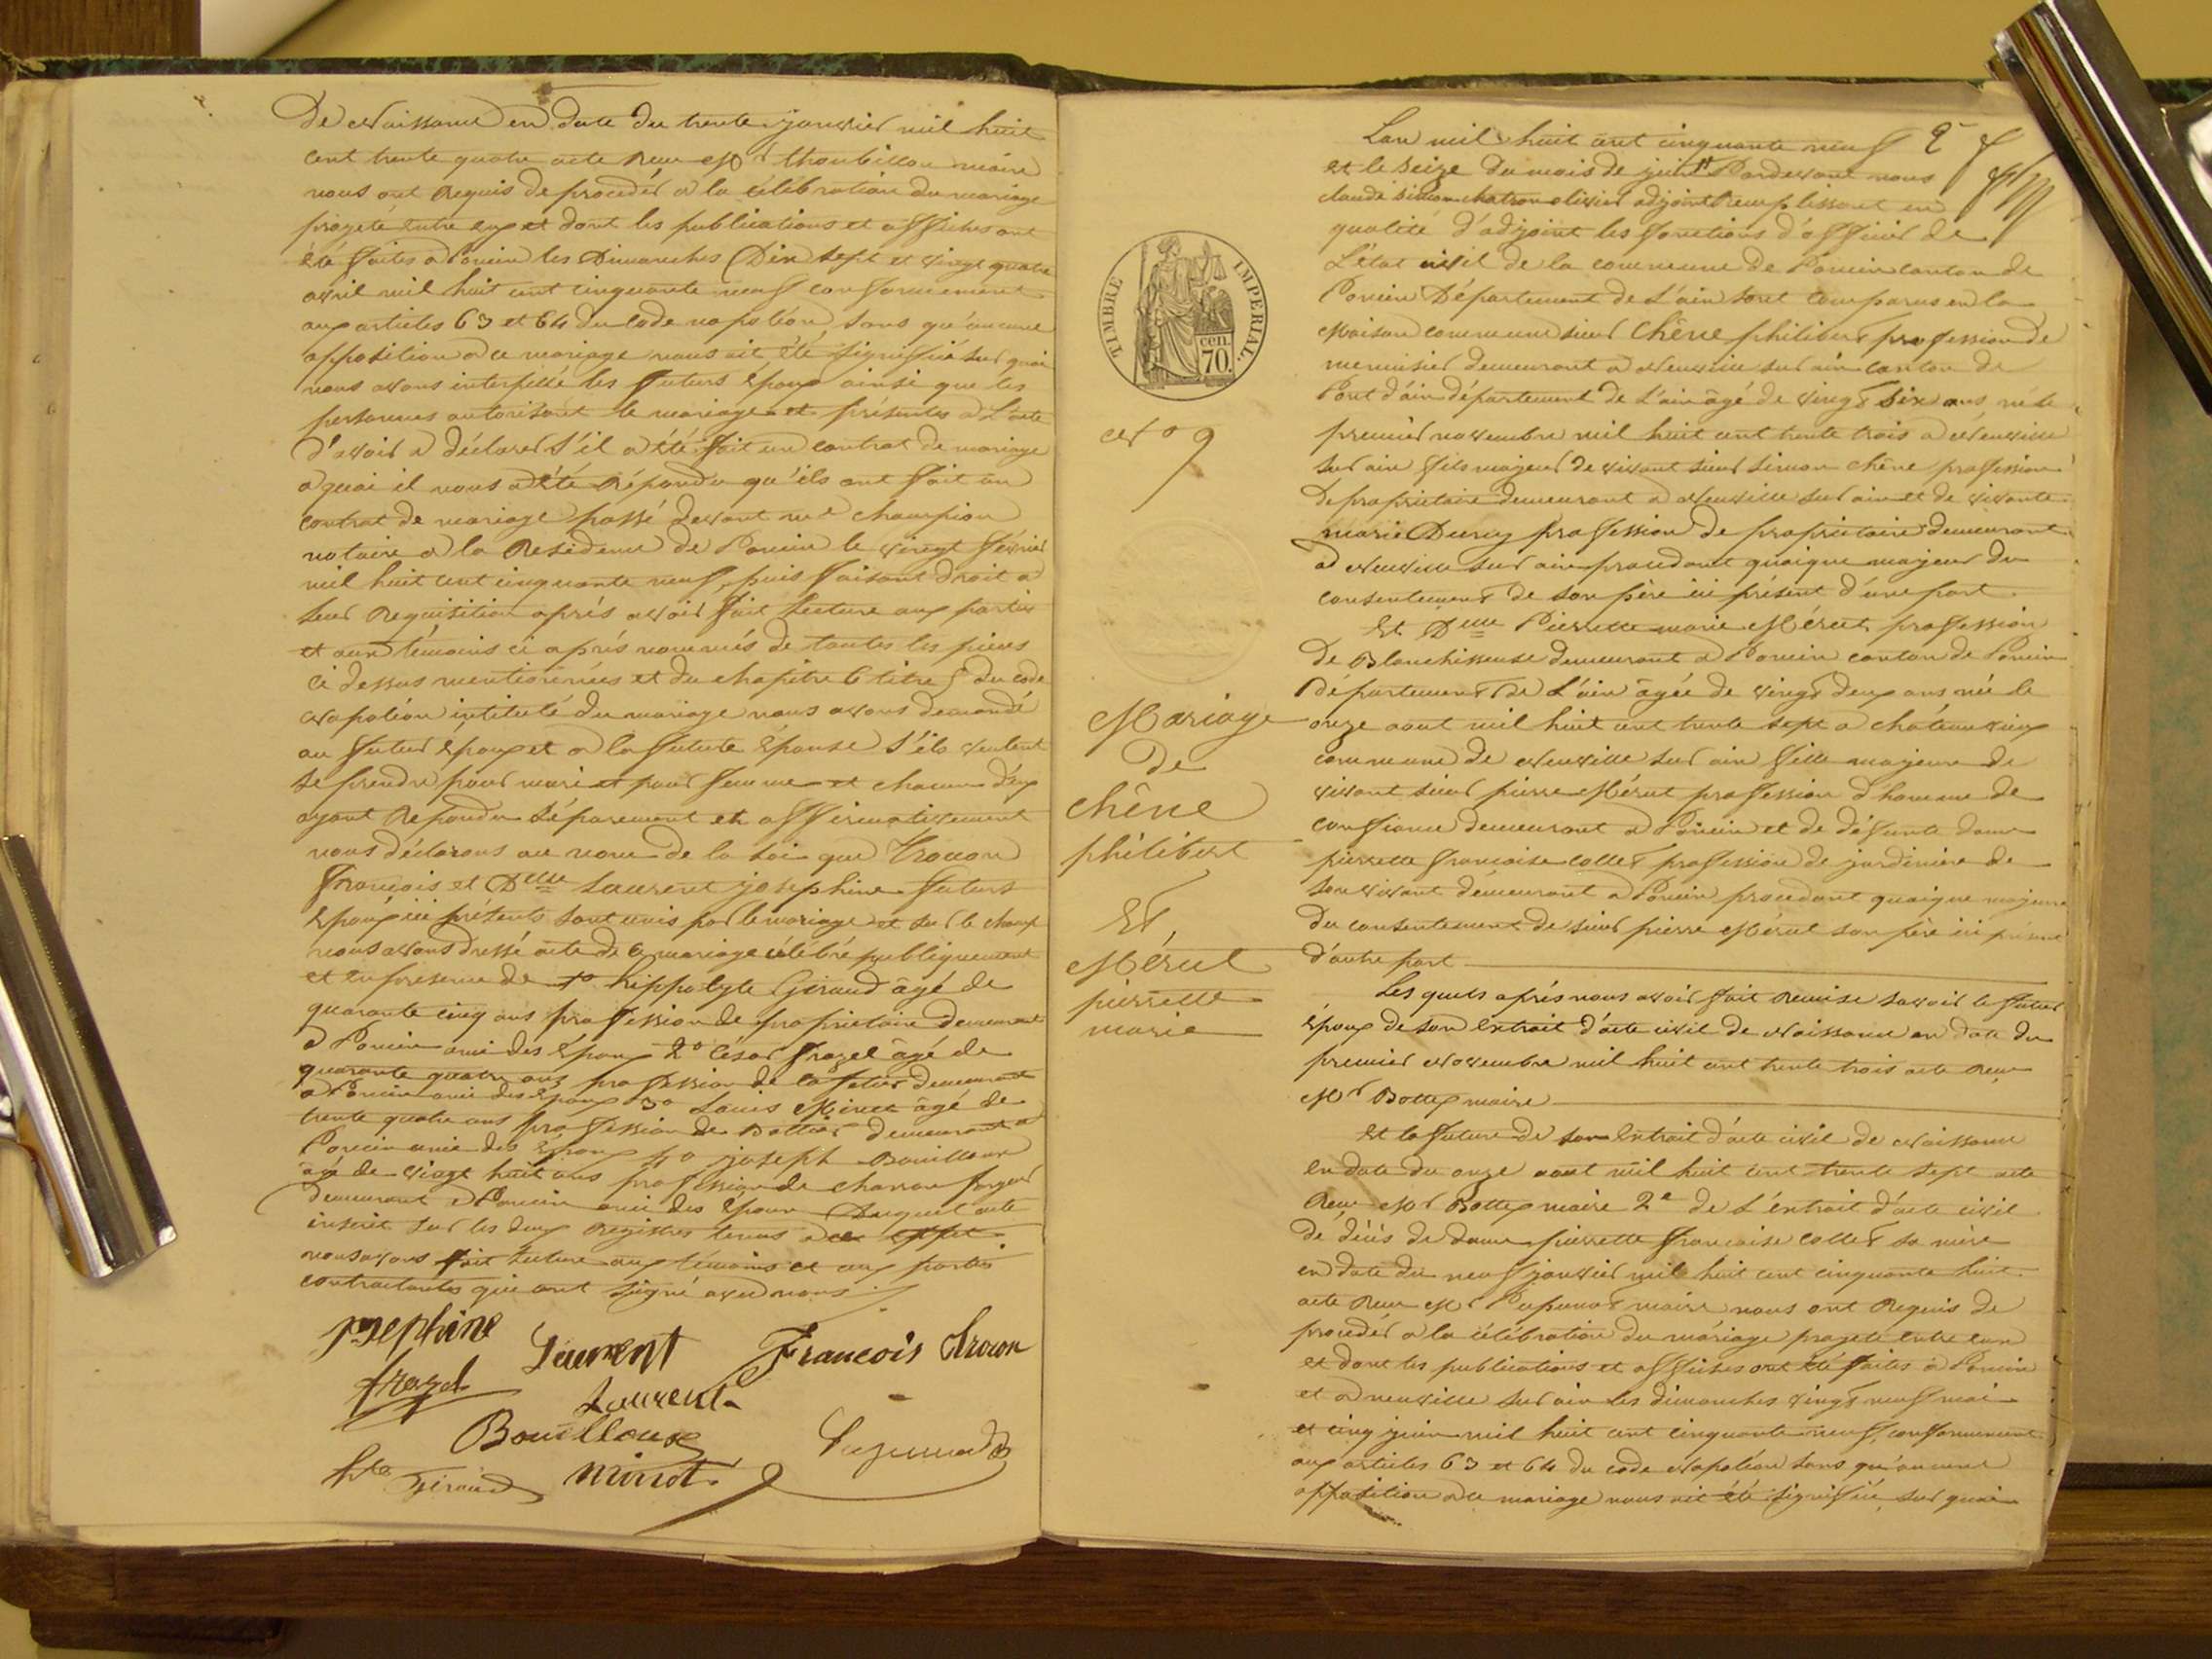 De Naissance en date du trente janvier mil huit
cent trente quatre acte Reçu Mr thoubillon maire
nous ont Requis de procéder à la célébration du mariage
projeté entre eux et dont les publications et affiches ont
été faites a Poncin les Dimanches Dix sept et vingt quatre
avril mil huit cent cinquante neuf conformement
aux articles 63 et 64 du Code napoléon, sans qu'aucune
opposition a ce mariage nous ait été signifiée sur quoi
nous avons interpellé les futurs Epoux ainsi que les
personnes autorisant le mariage et présentes a L'acte
d'avoir a déclarer s'il a été fait un contrat de mariage
a quoi il nous a été Répondu qu'ils ont fait un
contrat de mariage passé devant me Champion
notaire a la Résidence de Poncin le vingt février
mil huit cent cinquante neuf, puis faisant droit a
leur Requisition aprés avoir fait lecture aux parties
et aux témoins ci aprés nommés de toutes les pièces
ci dessus mentionnées et du chapitre 6 titre 5 du code
Napoléon intitulé du mariage nous avons demandé
au futur époux et a la future épouse s'ils veulent
se prendre pour mari et pour femme et chacun d'eux
ayant Répondu séparement et affirmativement
nous déclarons au nom de la loi que
François et Delle Laurent josephine futurs
Epoux ici présents sont unis par le mariage et sur le champ
nous avons dressé acte de ce mariage célébré publiquement
et en presence de 1o hippolyte Giraud âgé de
quarante cinq ans profession de propriétaire demeurant
a Poncin ami des époux 2o César frazel âgé de
quarante quatre ans profession de cafetier demeurant
a Poncin ami des époux 3o Louis Minot âgé de
trente quatre ans profession de Bottier demeurant a
Poncin ami des Epoux 4o joseph Bouilloux
âgé de vingt huit ans profession de charron forgeur
demeurant a Poncin ami des époux Duquel acte
inscrit sur les deux Registres tenus a cet effet
nous avons fait lecture aux témoins et aux parties
contractantes qui ont signé avec nous
josephine Laurent François
frazel Laurent
Bouilloux
hte Giraud Minot
TIMBRE IMPERIAL.
cen. 70.
No 9
Mariage
de
Chêne
philibert
Et
Mérul
pierrette
marie
Lan mil huit cent cinquante neuf
et le seize du mois de juin Pardevant nous
claude simon chatron olivier adjoint Remplissant en
qualité d'adjoint les fonctions d'officier de
L'état civil de la commune de Poncin canton de
Poncin Département de L'ain sont comparus en la
Maison commune sieur Chêne philibert profession de
menuisier demeurant a Neuville sur ain canton de
Pont d'ain département de L'ain âgé de vingt six ans, né le
premier novembre mil huit cent trente trois a Neuville
sur ain fils majeur de vivant sieur simon chêne profession
de propriétaire demeurant a Neuville sur ain et de vivante
marie profession de propriétaire demeurant
a Neuville sur ain procédant quoique majeur du
consentement de son père ici présent d'une part
Et Delle Pierrette marie Mérul profession
De Blanchisseuse demeurant a Poncin canton de Poncin
département de L'ain âgée de vingt deux ans née le
onze aout mil huit cent trente sept a châteauvieux
commune de Neuville sur ain fille majeure de
vivant sieur pierre Mérul profession d'homme de
confiance demeurant a Poncin et de défunte dame
pierrette françoise collet profession de jardinière de
son vivant demeurant a Poncin procédant quoique majeure
du consentement de sieur pierre Mérul son père ici présent
d'autre part
Les quels aprés nous avoir fait Remise savoir le futur
époux de son extrait d'acte civil de Naissance en date du
premier Novembre mil huit cent trente trois acte Reçu
Mr Bottex maire
et la future de son Extrait d'acte civil de Naissance
en date du onze aout mil huit cent trente sept acte
Reçu Mr Bottex maire 2e de L'éxtrait d'acte civil
de décès de dame pierrette françoise collet sa mère
en date du neuf janvier mil huit cent cinquante huit
acte Reçu Mr maire nous ont Requis de
procéder a la célébration du mariage projeté entre eux
et dont les publications et affiches ont été faites a Poncin
et a neuville sur ain les dimanches vingt neuf mai
et cinq juin mil huit cent cinquante neuf, conformement
aux articles 63 et 64 du code Napoléon sans qu'aucune
opposition a ce mariage nous ait été signifiée, sur quoi